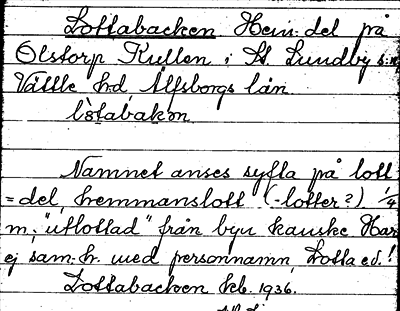 Lottabacken Hem.del på
Olstorp Kullen i St. Lundby s:n,
Vättle hd, Älfsborgs län
Namnet anses syfta på lott
=del, hemmanslott (-lotter?) 1/4
m; "utlottad" från byn kanske Har
ej sam.h. med personnamn, Lotta ed.!
Lottabacken keb. 1936.